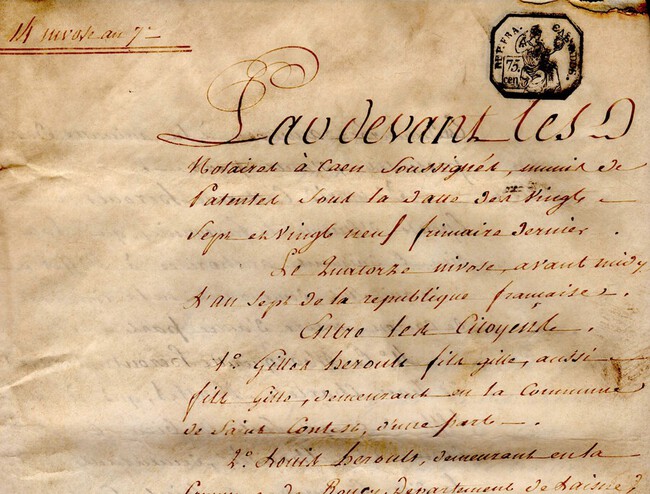 14 nivose an 7e
REP. FRA. CALVADOS.
75 cen
Pardevant les
Notaires à Caen Soussignés, munis de
Patentes Sous la date des vingt
Sept et vingt neuf frimaire dernier.
Le Quatorze nivose, avant midy
L'an Sept de la republique francaise.
Entre les Citoyens.
1o. Gilles heroult fils gille, aussi
fils Gille, demeurant en la Commune
de Saint Contest, d'une part.
2o. Louis heroult, demeurant en la
Commune de Roucy, Departement de Laisne,